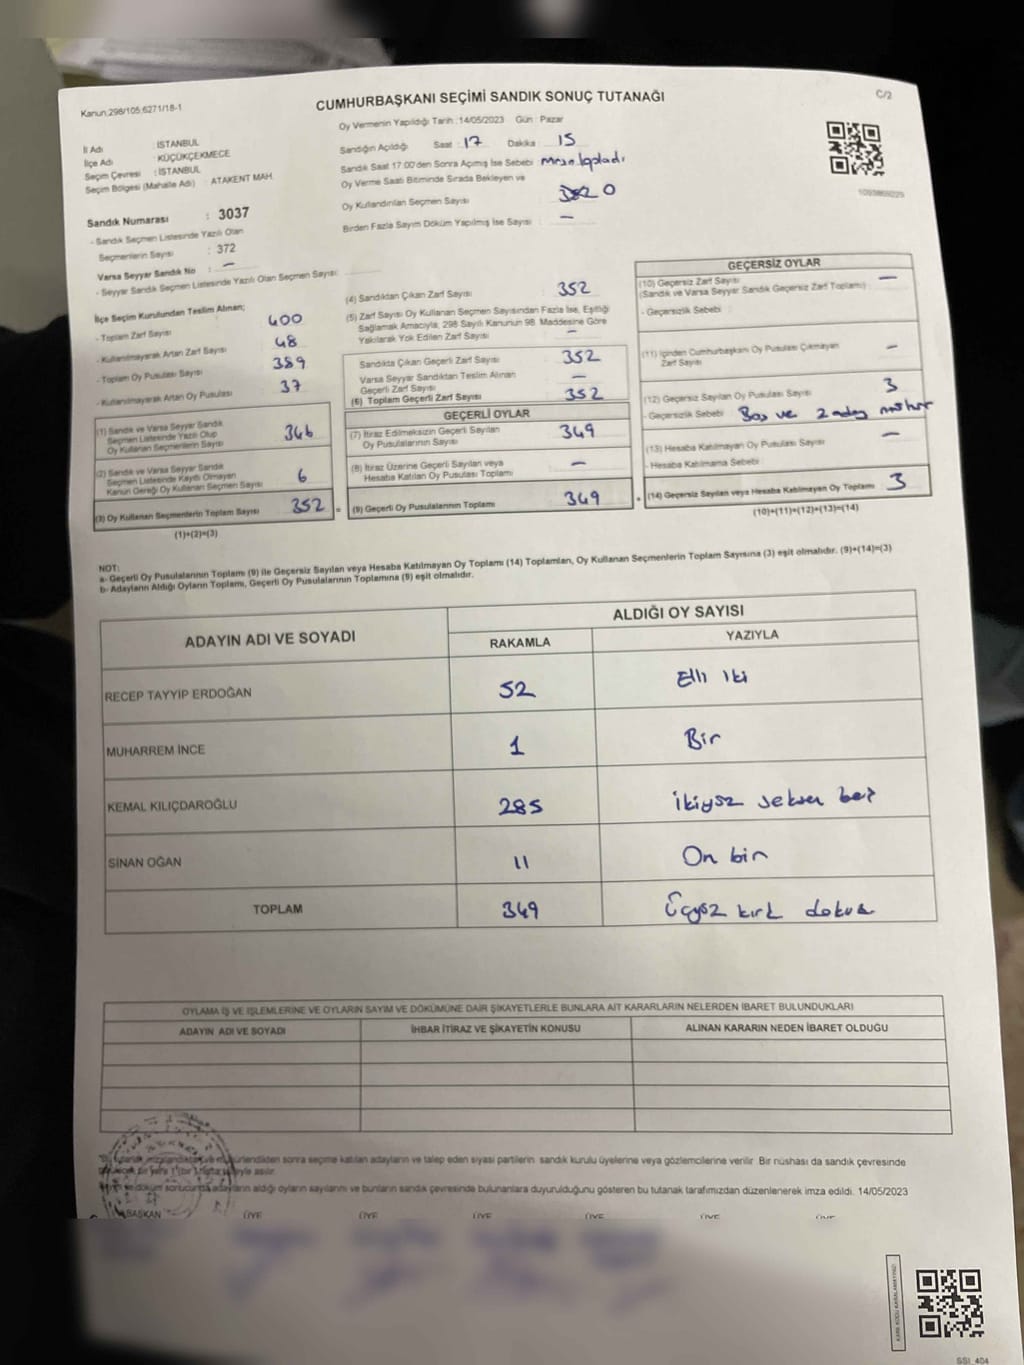 Kanun;298/105;6271/18-1
CUMHURBAŞKANI SEÇİMİ SANDIK SONUÇ TUTANAĞI
C/2
Oy Vermenin Yapıldığı Tarih :14/05/2023 Gün : Pazar
İl Adı : İSTANBUL
İlçe Adı : KÜÇÜKÇEKMECE
Seçim Çevresi : İSTANBUL
Seçim Bölgesi (Mahalle Adı) : ATAKENT MAH.
Sandığın Açıldığı Saat : 17 Dakika 15
Sandık Saat 17.00'den Sonra Açımış İse Sebebi
Oy Verme Saati Bitiminde Sırada Bekleyen ve
Oy Kullandırılan Seçmen Sayısı 0
Birden Fazla Sayım Döküm Yapılmış İse Sayısı : —
Sandık Numarası : 3037
- Sandık Seçmen Listesinde Yazılı Olan
Seçmenlerin Sayısı : 372
Varsa Seyyar Sandık No : —
- Seyyar Sandık Seçmen Listesinde Yazılı Olan Seçmen Sayısı:
İlçe Seçim Kurulundan Teslim Alınan;
- Toplam Zarf Sayısı 400
- Kullanılmayarak Artan Zarf Sayısı 48
- Toplam Oy Pusulası Sayısı 389
- Kullanılmayarak Artan Oy Pusulası 37
(1) Sandık ve Varsa Seyyar Sandık
Seçmen Listesinde Yazılı Olup
Oy Kullanan Seçmenlerin Sayısı 346
(2) Sandık ve Varsa Seyyar Sandık
Seçmen Listesinde Kayıtlı Olmayan
Kanun Gereği Oy Kullanan Seçmen Sayısı 6
(3) Oy Kullanan Seçmenlerin Toplam Sayısı 352 =
(1)+(2)=(3)
(4) Sandıktan Çıkan Zarf Sayısı 352
(5) Zarf Sayısı Oy Kullanan Seçmen Sayısından Fazla İse, Eşitliği
Sağlamak Amacıyla, 298 Sayılı Kanunun 98. Maddesine Göre
Yakılarak Yok Edilen Zarf Sayısı —
Sandıkta Çıkan Geçerli Zarf Sayısı 352
Varsa Seyyar Sandıktan Teslim Alınan
Geçerli Zarf Sayısı —
(6) Toplam Geçerli Zarf Sayısı 352
GEÇERLİ OYLAR
(7) İtiraz Edilmeksizin Geçerli Sayılan
Oy Pusulalarının Sayısı 349
(8) İtiraz Üzerine Geçerli Sayılan veya
Hesaba Katılan Oy Pusulası Toplamı —
(9) Geçerli Oy Pusulalarının Toplamı 349 +
GEÇERSİZ OYLAR
(10) Geçersiz Zarf Sayısı —
(Sandık ve Varsa Seyyar Sandık Geçersiz Zarf Toplamı) :
- Geçersizlik Sebebi :
(11) İçinden Cumhurbaşkanı Oy Pusulası Çıkmayan
Zarf Sayısı —
(12) Geçersiz Sayılan Oy Pusulası Sayısı 3
- Geçersizlik Sebebi Boş ve 2 aday
(13) Hesaba Katılmayan Oy Pusulası Sayısı —
- Hesaba Katılmama Sebebi :
(14) Geçersiz Sayılan veya Hesaba Katılmayan Oy Toplamı 3
(10)+(11)+(12)+(13)=(14)
NOT:
a- Geçerli Oy Pusulalarının Toplamı (9) ile Geçersiz Sayılan veya Hesaba Katılmayan Oy Toplamı (14) Toplamları, Oy Kullanan Seçmenlerin Toplam Sayısına (3) eşit olmalıdır. (9)+(14)=(3)
b- Adayların Aldığı Oyların Toplamı, Geçerli Oy Pusulalarının Toplamına (9) eşit olmalıdır.
ADAYIN ADI VE SOYADI
ALDIĞI OY SAYISI
RAKAMLA YAZIYLA
RECEP TAYYİP ERDOĞAN 52 Elli iki
MUHARREM İNCE 1 Bir
KEMAL KILIÇDAROĞLU 285 ikiyüz seksen beş
SİNAN OĞAN 11 On bir
TOPLAM 349 Üçyüz kırk dokuz
OYLAMA İŞ VE İŞLEMLERİNE VE OYLARIN SAYIM VE DÖKÜMÜNE DAİR ŞİKAYETLERLE BUNLARA AİT KARARLARIN NELERDEN İBARET BULUNDUKLARI
ADAYIN ADI VE SOYADI İHBAR İTİRAZ VE ŞİKAYETİN KONUSU ALINAN KARARIN NEDEN İBARET OLDUĞU
sonra seçime katılan adayların ve talep eden siyasi partilerin sandık kurulu üyelerine veya gözlemcilerine verilir. Bir nüshası da sandık çevresinde
asılır.
adayların aldığı oyların sayılarını ve bunların sandık çevresinde bulunanlara duyurulduğunu gösteren bu tutanak tarafımızdan düzenlenerek imza edildi. 14/05/2023
BAŞKAN ÜYE ÜYE ÜYE ÜYE ÜYE ÜYE
SSI_404